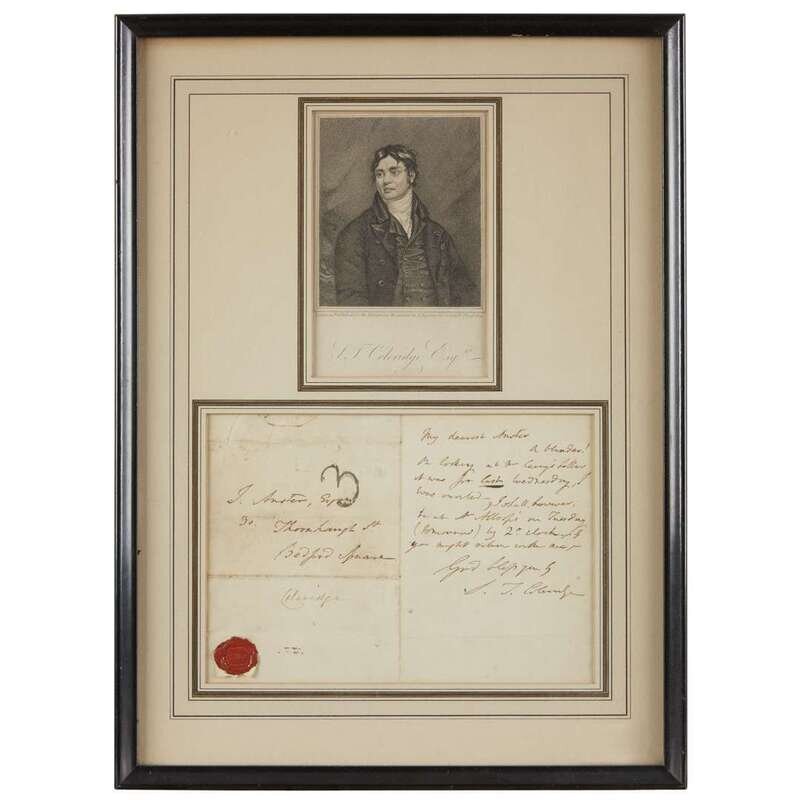 S. T. Coleridge Esqr.
3
J. Anster, Esqre
30.
Thornhaugh St
Bedford Square
Coleridge
My dearest Anster
A blunder!
On looking at Mr Letter
it was for last Wednesday, I
was invited. I shall, however,
be at Mr on Tuesday
(tomorrow) by 2 clock, if
you might return with me.
God bless you &
S. T. Coleridge